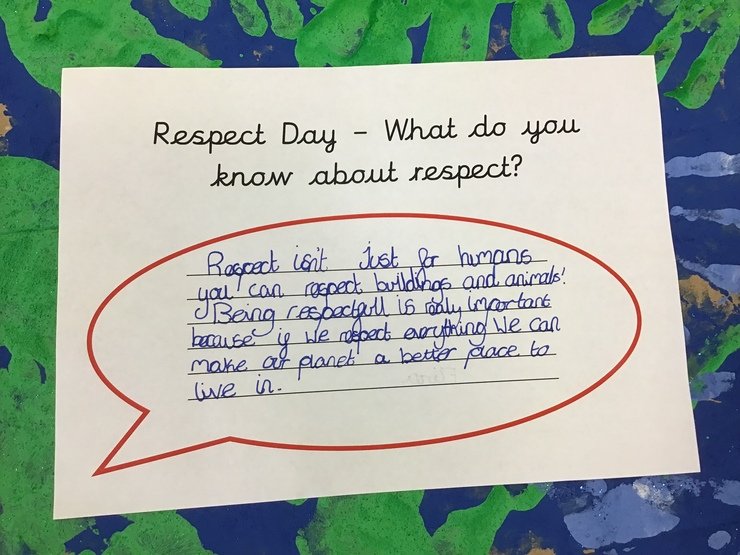 Respect Day - What do you
know about respect?
Respect isn't Just for humans
you can respect buildings and animals!
Being respectfull is really important
because if we respect everything We can
make our planet a better place to
live in.